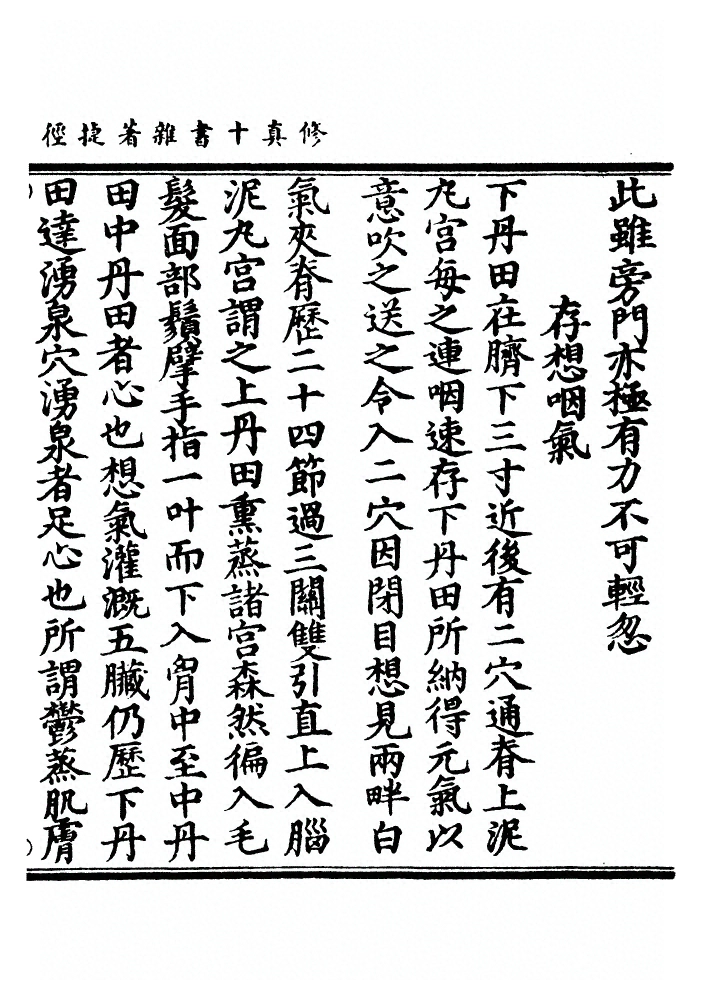 修真十書雜著捷徑
此雖旁門亦極有力不可輕忽
存想咽氣
下丹田在臍下三寸近後有二穴通脊上泥
丸宮每之連咽速存下丹田所納得元氣以
意吹之送之令入二穴因閉目想見兩畔白
氣夾脊歷二十四節過三關雙引直上入腦
泥丸宮謂之上丹田熏蒸諸宮森然徧入毛
髮面部鬚擘手指一叶而下入胷中至中丹
田中丹田者心也想氣灌溉五臟仍歷下丹
田達湧泉穴湧泉者足心也所謂鬱蒸肌膚